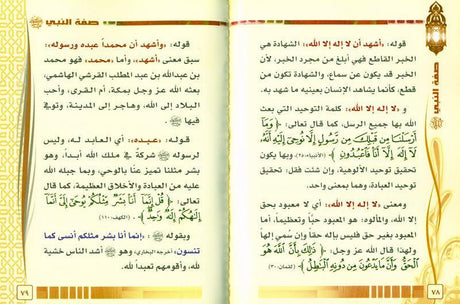 صفة النبي ﷺ
قوله: «أشهد أن لا إله إلا الله»: الشهادة هي
الخبر القاطع فهي أبلغ من مجرد الخبر، لأن
الخبر قد يكون عن سماع، والشهادة تكون من
قطع، كأنما يشاهد الإنسان بعينيه ما شهد به.
و «لا إله إلا الله»: كلمة التوحيد التي بعث
الله بها جميع الرسل، كما قال تعالى: ﴿وَمَا
أَرْسَلْنَا مِن قَبْلِكَ مِن رَّسُولٍ إِلَّا نُوحِي إِلَيْهِ أَنَّهُ
لَا إِلَهَ إِلَّا أَنَا فَاعْبُدُونِ﴾ (الأنبياء:٢٥)، وبها يكون
تحقيق توحيد الألوهية، وإن شئت فقل: تحقيق
توحيد العبادة، وهما بمعنى واحد.
ومعنى «لا إله إلا الله»: أي لا معبود بحق
إلا الله، والمألوه: هو المعبود حبًّا وتعظيماً، أما
المعبود بغير حق فليس بإله حقا وإن سُمي إلهاً
ولهذا قال الله عز وجل: ﴿ذَلِكَ بِأَنَّ اللَّهَ هُوَ
الْحَقُّ وَأَنَّ مَا يَدْعُونَ مِن دُونِهِ الْبَاطِلُ﴾ (لقمان:٣٠)
٧٨
صفة النبي ﷺ
قوله: «وأشهد أن محمداً عبده ورسوله»:
سبق معنى «أشهد»، وأما «محمد» فهو محمد
بن عبدالله بن عبد المطلب القرشي الهاشمي،
بعثه الله عز وجل بمكة، أم القرى، وأحب
البلاد إلى الله، وهاجر إلى المدينة، وتوفي
فيها ﷺ.
قوله: «عبده»: أي العابد له، وليس
لرسوله ﷺ شركة في ملك الله أبداً، وهو
بشر مثلنا تميز عنا بالوحي، وبما جبله الله
عليه من العبادة والأخلاق العظيمة، كما قال
تعالى: ﴿قُلْ إِنَّمَا أَنَا بَشَرٌ مِّثْلُكُمْ يُوحَى إِلَيَّ أَنَّمَا
إِلَهُكُمْ إِلَهٌ وَاحِدٌ﴾ (الكهف:١١٠)
وبقوله ﷺ: «إنما أنا بشر مثلكم أنسى كما
تنسون» (أخرجه البخاري)، وهو ﷺ أشد الناس خشية
لله، وأقومهم تعبداً لله.
٧٩